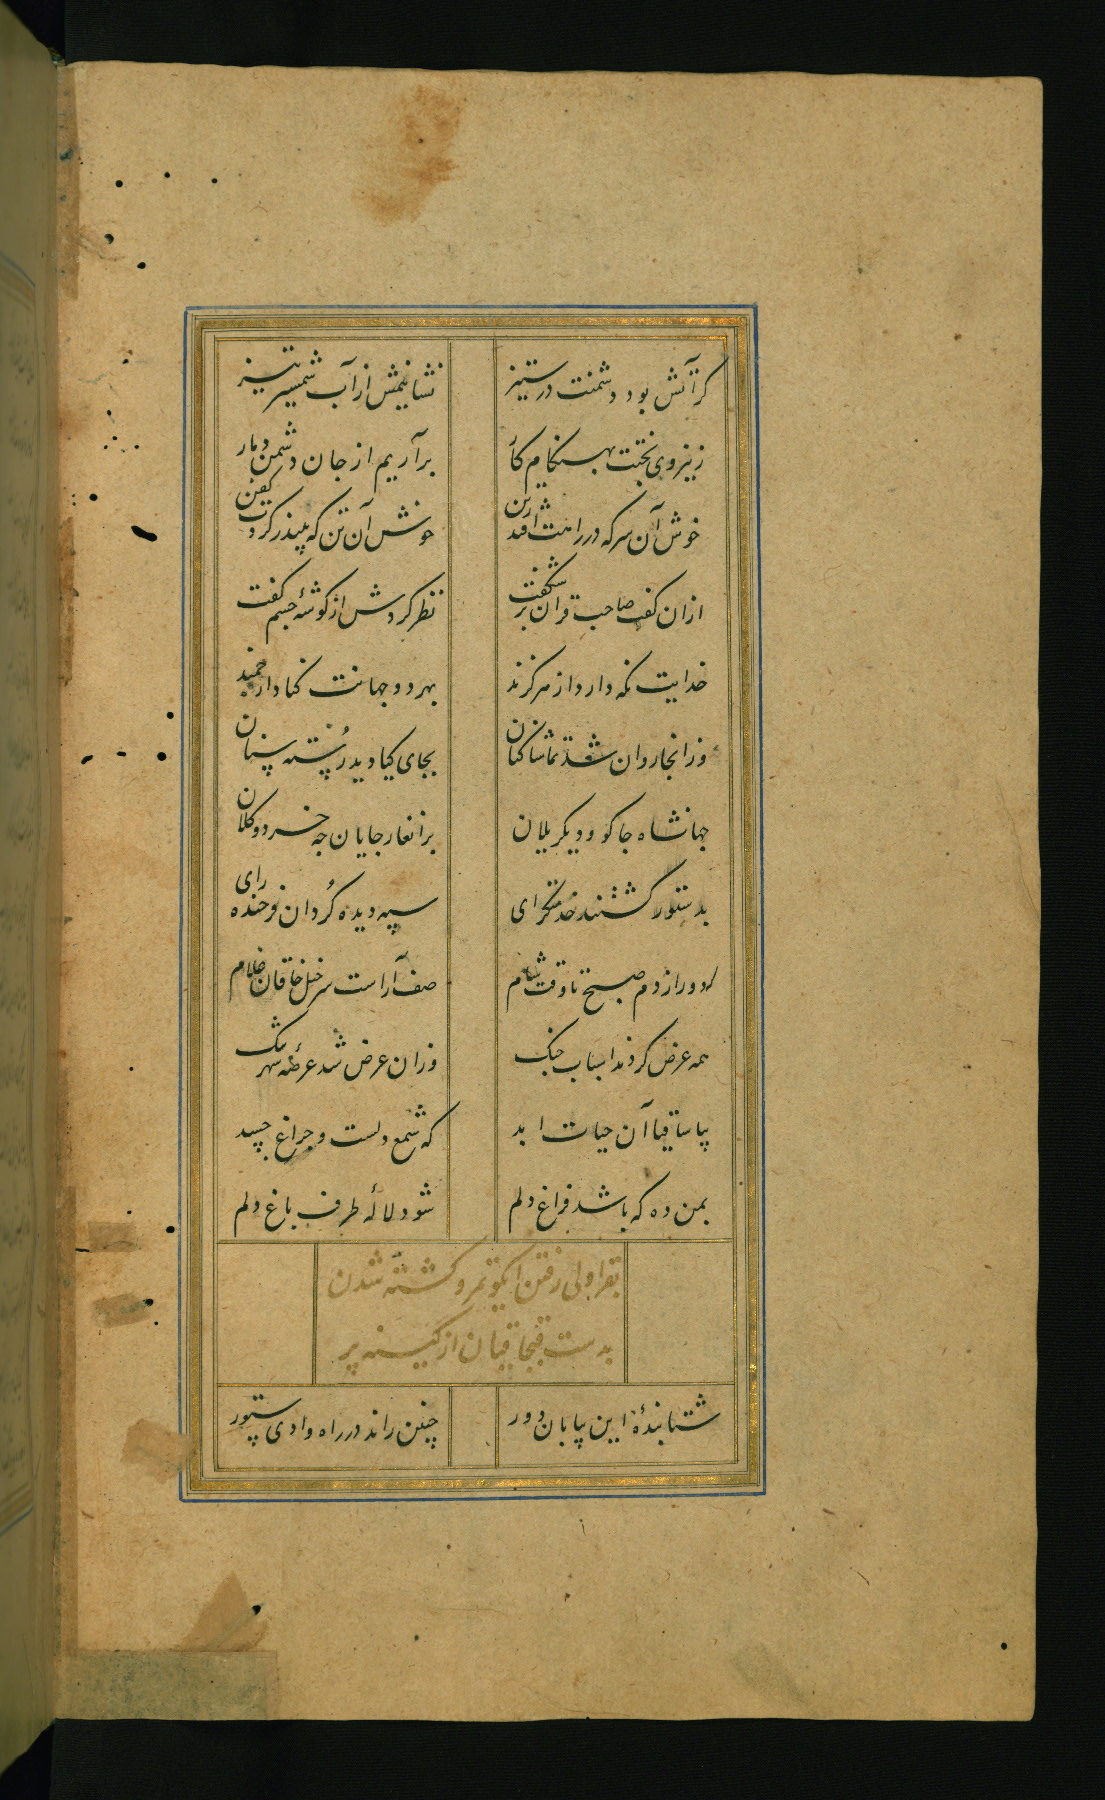 کر آتش بود دشمنت در ستیز نشانیمش از آب شمشیر تیز
ز نیروی بختت بهنکام کار برآریم از جان دشمن دمار
خوش آن سر که در راهت افتد ز تن خوش آن تن که پیشت کفن
ازان کفت صاحب قران بر شکفت نظر کردش از کوشهٔ چشم کفت
خدایت نکه دارد از هر کزند بهر دو جهانت کناد ارجمند
وز انجا روان شد تماشا کنان بجای کیا دید رُسته سنان
جهانشاه جاکو و دیکر یلان برانغار جایان چه خرد و کلان
بدستور کشتند خدمتکرای سپه دیده کُردان فرخنده رای
دو روز از دم صبح تا وقت شام صف آراست سر خیل خاقان غلام
همه عرض کردند اسباب جنک وزان عرض شد عرصهٔ تنک
بیا ساقیا آن حیات ابد که شمع دلست و چراغ جسد
بمن ده که باشد فراغ دلم شود لالهٔ طرف باغ دلم
بقراولی رفتن ایکوتمر و کشته شدن
بدست قبچاقیان از کینه پر
شتابندهٔ این بیابان دور چنین راند در راه وادی ستور